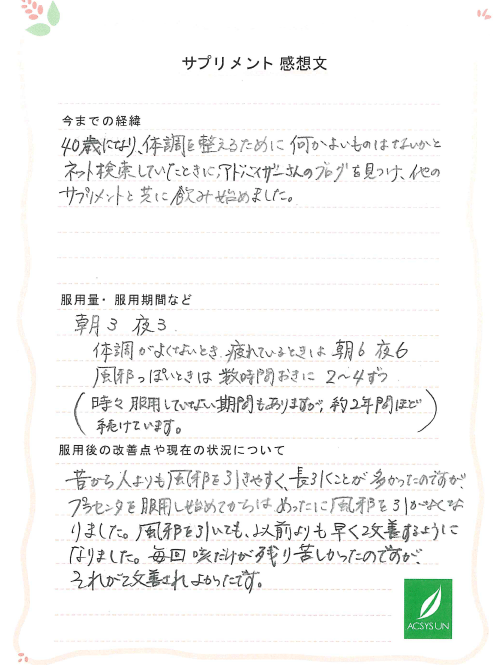 サプリメント 感想文
今までの経緯
40歳になり、体調を整えるために何かよいものはないかと
ネット検索していたときに、アドバイザーさんのブログを見つけ、他の
サプリメントと共に飲み始めました。
服用量・服用期間など
朝3 夜3
体調がよくないとき、疲れているときは 朝6 夜6
風邪っぽいときは 数時間おきに 2〜4ずつ
(時々服用していない期間もありますが、約2年間ほど
続けています。)
服用後の改善点や現在の状況について
昔から人よりも風邪を引きやすく、長引くことが多かったのですが、
プラセンタを服用し始めてからはめったに風邪を引かなくな
りました。風邪を引いても、以前よりも早く改善するように
なりました。毎回 咳だけが残り苦しかったのですが、
それが改善されよかったです。
ACSYSUN